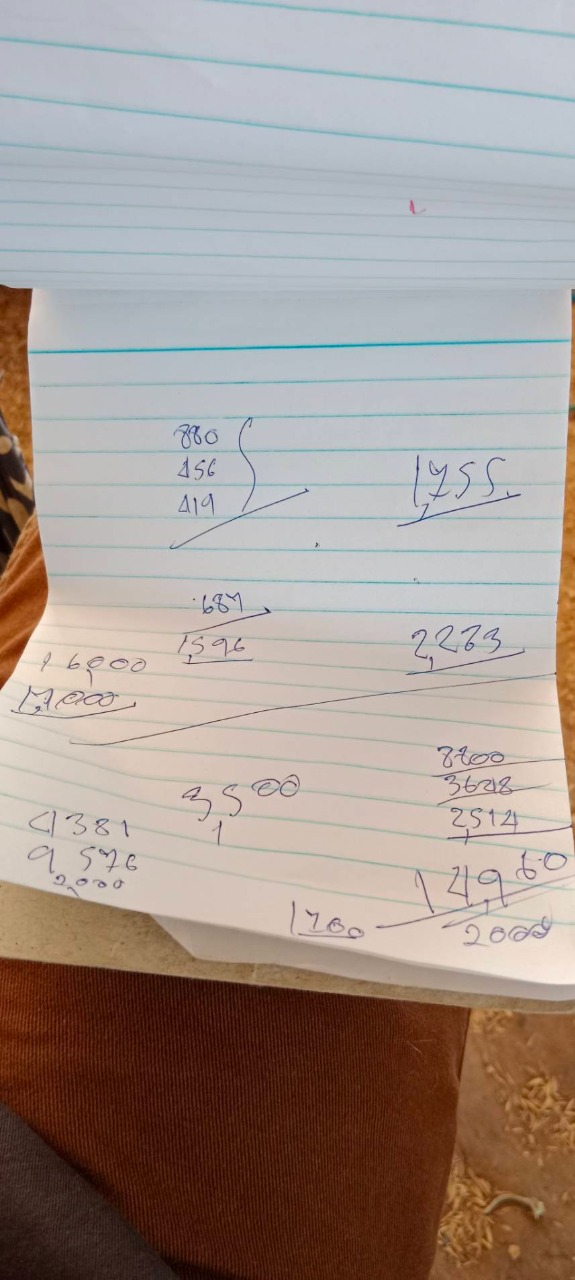 880
456
419
1,755
687
1,596
2,283
16,000
17,000
8800
3648
2,514
3,500
4381
9,576
2,000
149,60
1700
2000